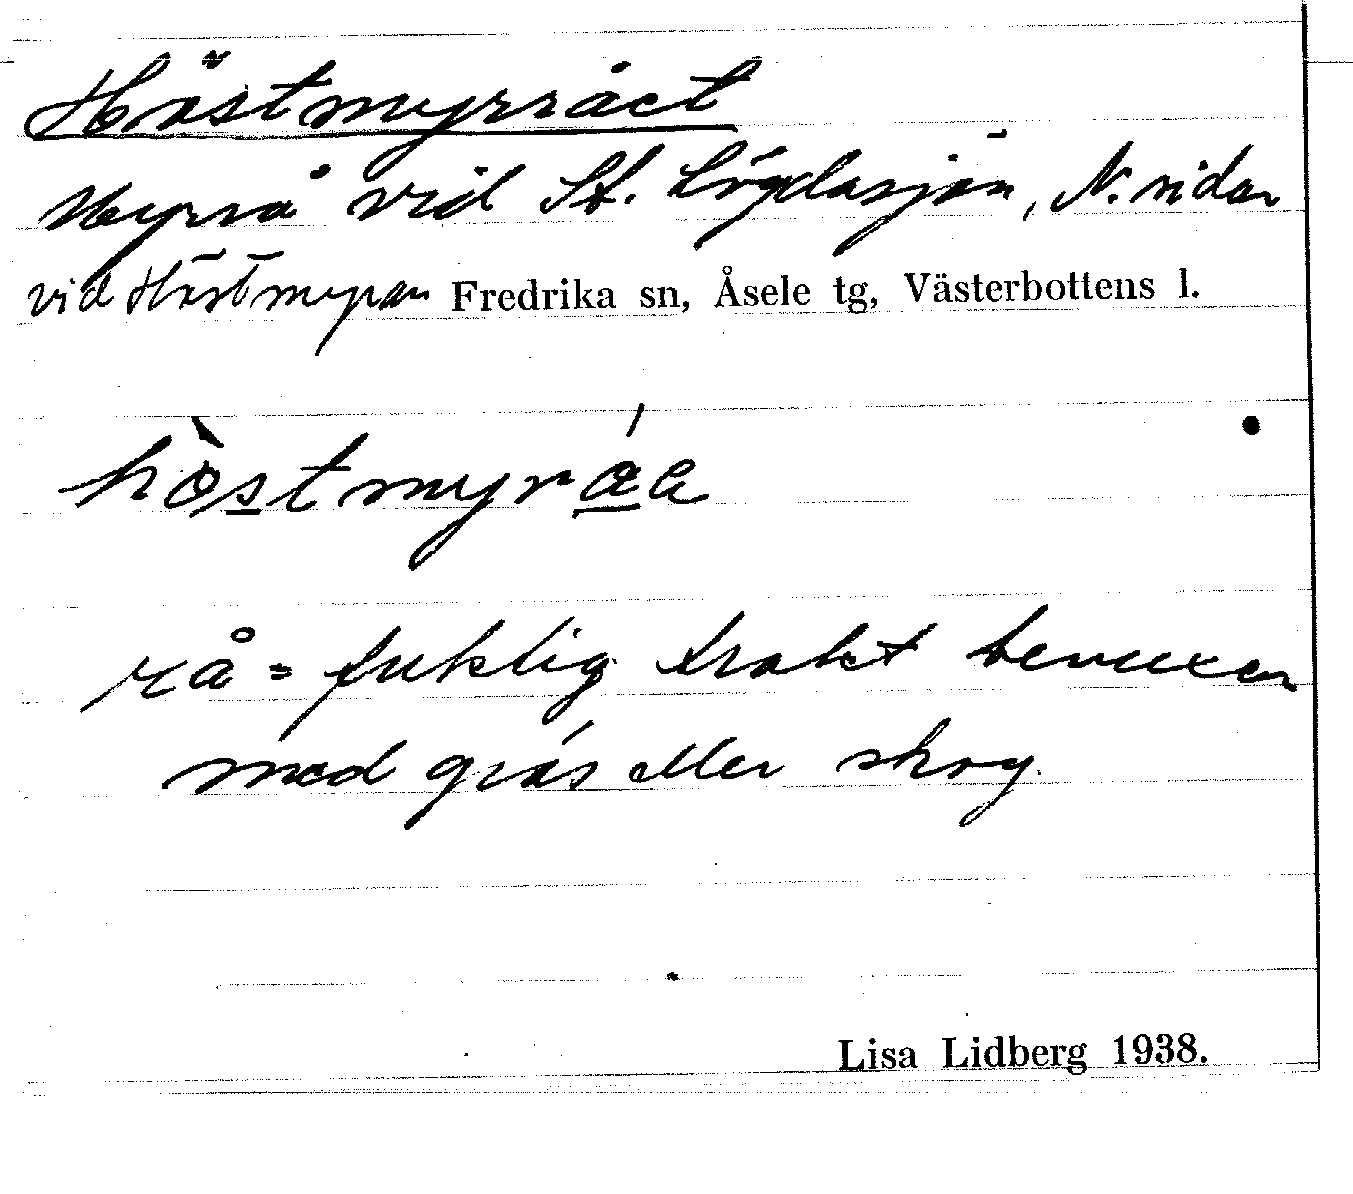 Höstmyrrået
Myrrå vid St. Lögdasjön, N. sidan
vid Höstmyran Fredrika sn, Åsele tg, Västerbottens l.
hòstmyráa
rå = fuktig trakt bevuxen
med gräs eller skog.
Lisa Lidberg 1938.